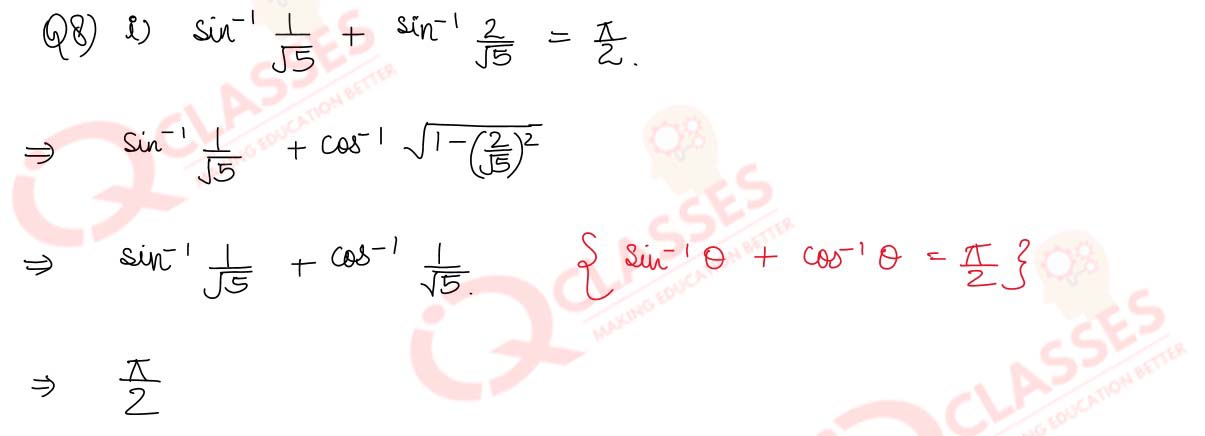 Q8) i) sin⁻¹ 1/√5 + sin⁻¹ 2/√5 = π/2.
⇒ sin⁻¹ 1/√5 + cos⁻¹ √(1-(2/√5)²)
⇒ sin⁻¹ 1/√5 + cos⁻¹ 1/√5. {sin⁻¹ θ + cos⁻¹ θ = π/2}
⇒ π/2
IQ CLASSES
MAKING EDUCATION BETTER
IQ CLASSES
MAKING EDUCATION BETTER
CLASSES
MAKING EDUCATION BETTER